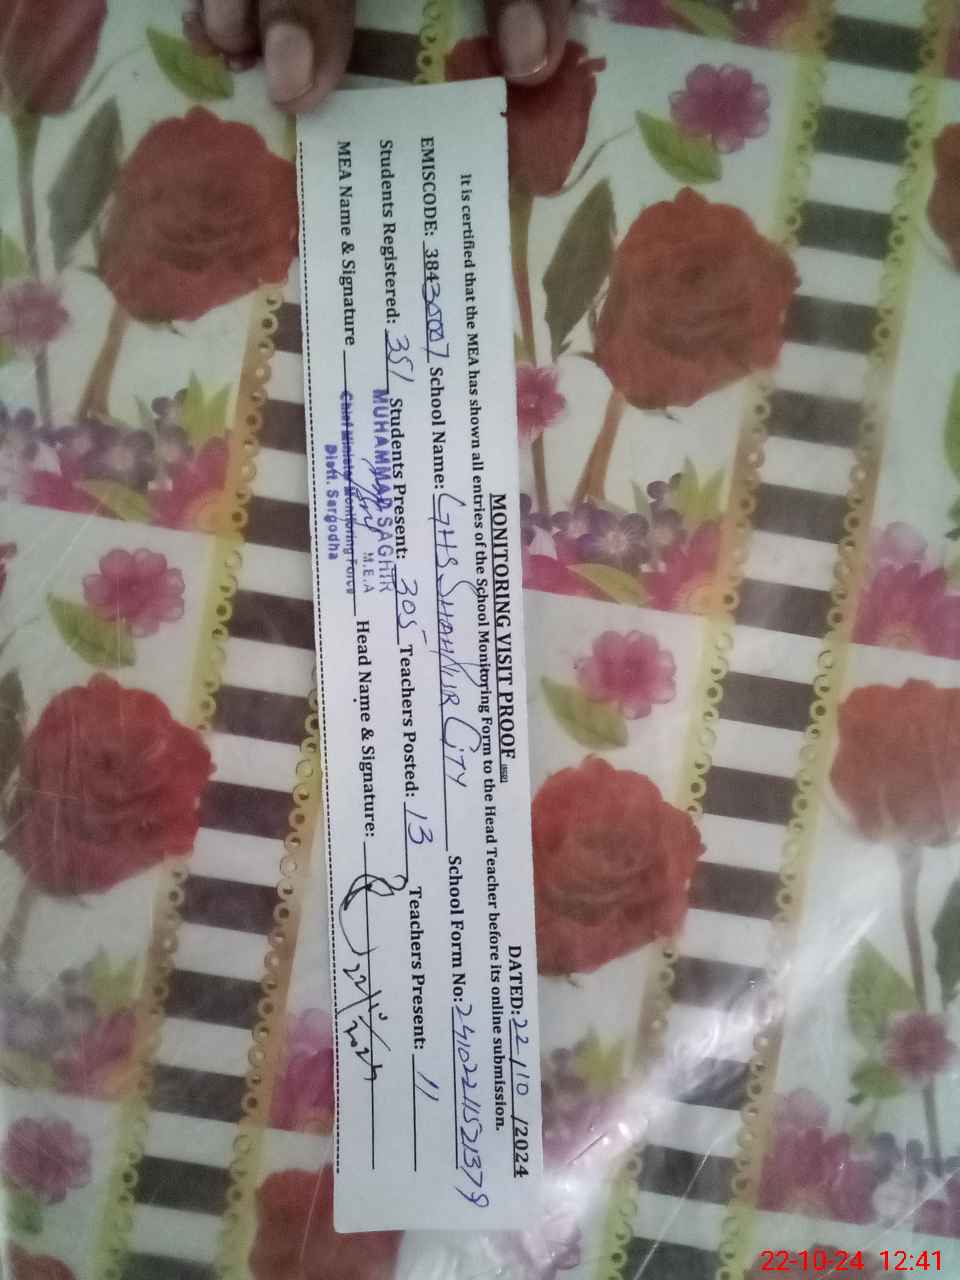 MONITORING VISIT PROOF
DATED: 22/10/2024
It is certified that the MEA has shown all entries of the School Monitoring Form to the Head Teacher before its online submission.
EMISCODE: 38430007 School Name: GHS SHAHPUR CITY School Form No:
Students Registered: 351 Students Present: 305 Teachers Posted: 13 Teachers Present: 11
MEA Name & Signature Head Name & Signature:
MUHAMMAD SAGHIR
M.E.A
Chief Minister Monitoring Force
Distt. Sargodha
22/10/2024
22-10-24 12:41